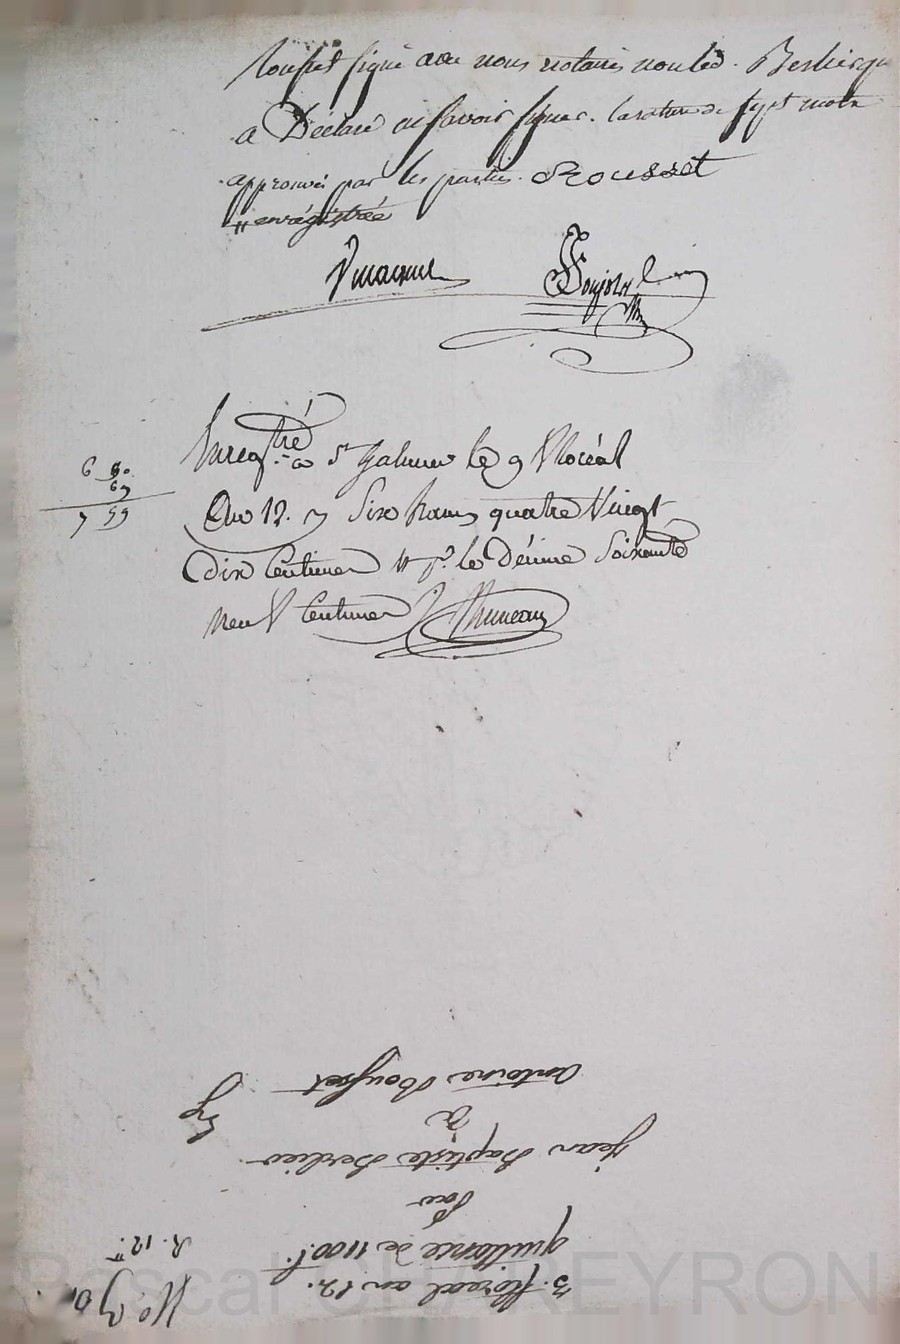 Rousset signé avec nous notaires non led. Berlier qui
a Déclaré ne savoir signer. la rature de sept mots
approuvée par les parties. Rousset
enregistrée
Pujol
Enregtré a St Galmier le 9 floréal
6 90.
69
7 59
an 12. Six francs quatre Vingt
dix Centimes pr. le Décime Soixante
neuf Centimes
No. 90
3. floreal an 12.
R. 12
quittance de 1100 f.
Par
Jean Baptiste Berlier
a
Antoine Rousset
Pascal CHAREYRON